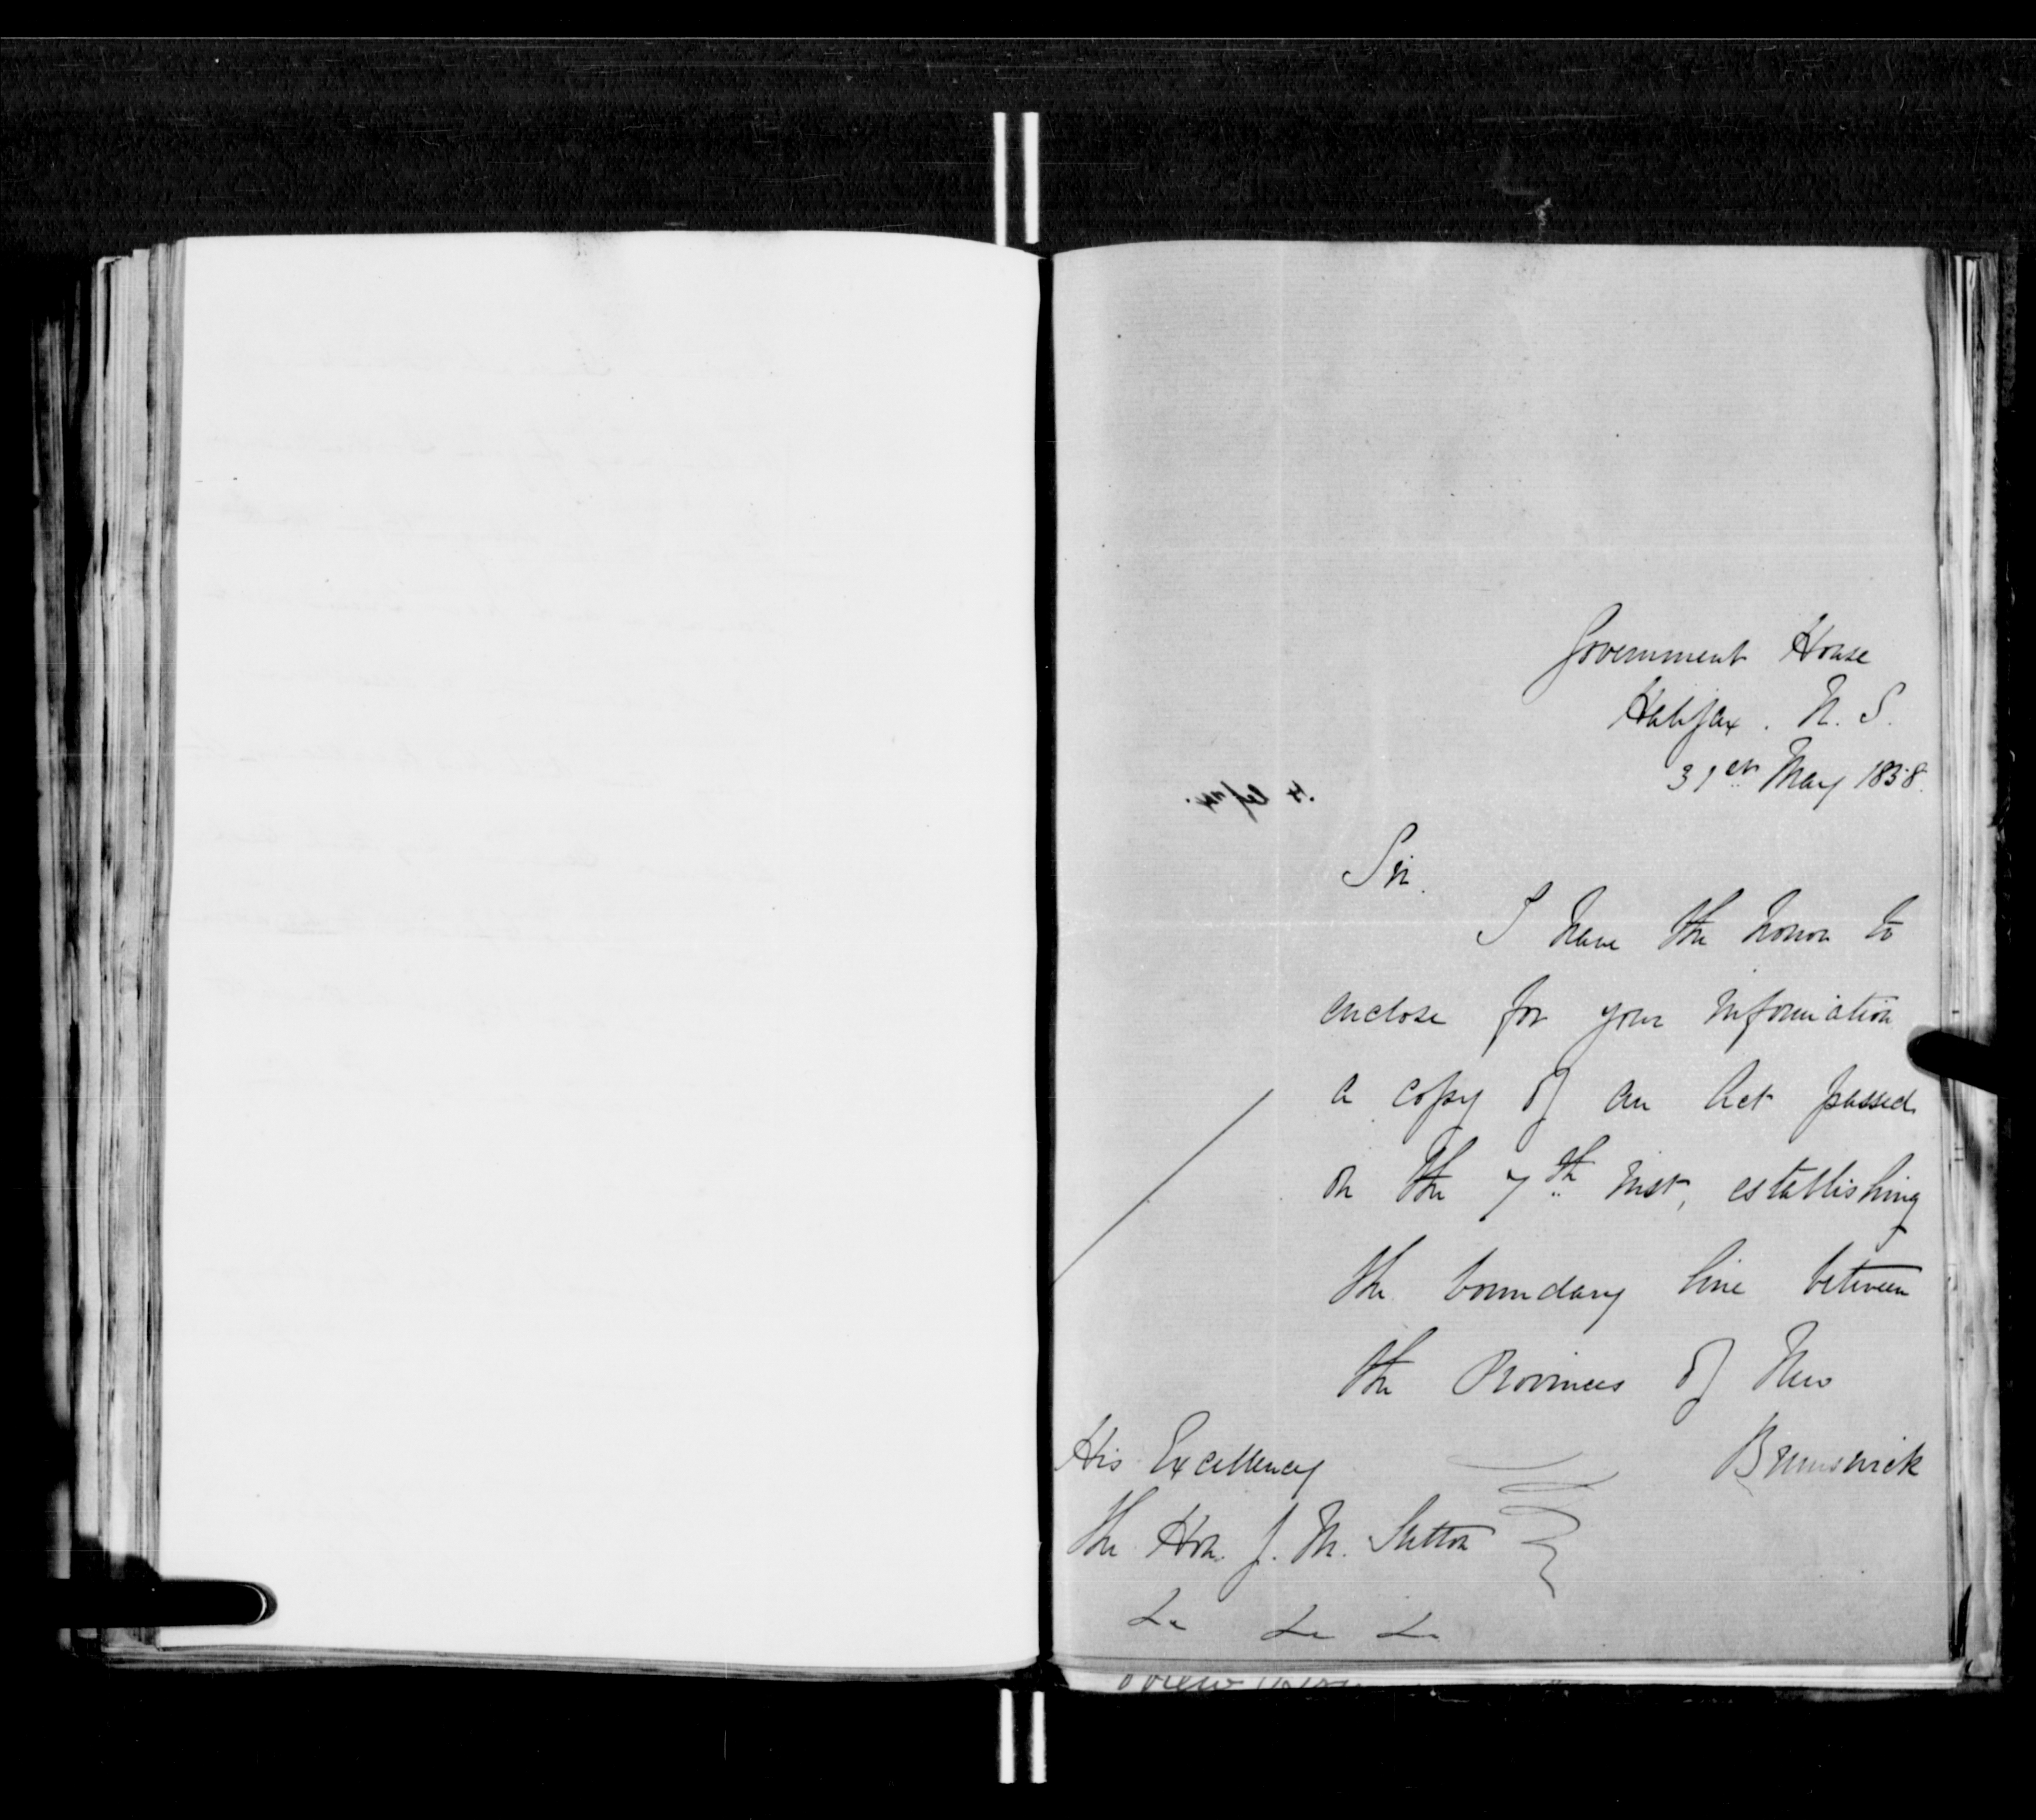 Government House
Halifax. N. S.
31st May 1858.
Sir.
I have the honor to
enclose for your information
a copy of an Act passed
on the 7th inst, establishing
the boundary line between
the Provinces of New
Brunswick
His Excellency
the Hon. J. M. Sutton
&c &c &c